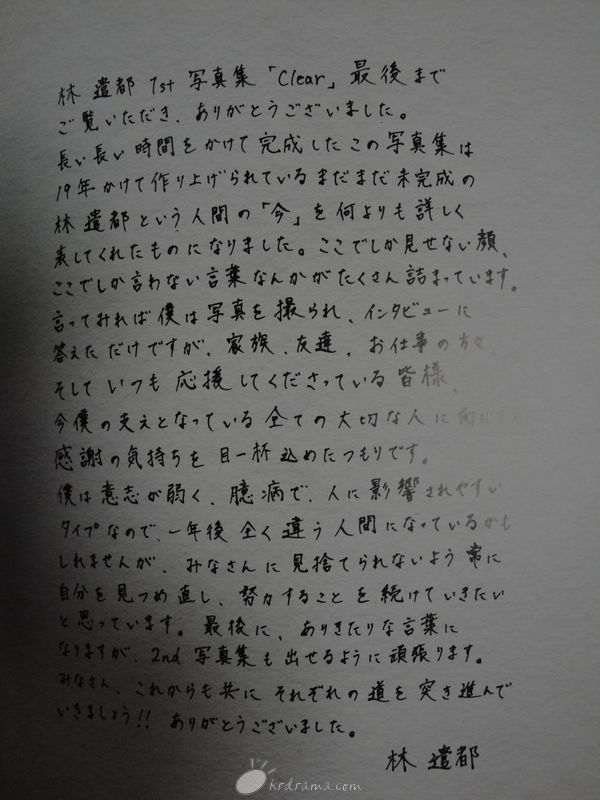 林 遣都 1st 写真集「Clear」最後まで
ご覧いただき、ありがとうございました。
長い長い時間をかけて完成したこの写真集は
19年かけて作り上げられているまだまだ未完成の
林 遣都という人間の「今」を何よりも詳しく
表してくれたものになりました。ここでしか見せない顔、
ここでしか言わない言葉なんかがたくさん詰まっています。
言ってみれば僕は写真を撮られ、インタビューに
答えただけですが、家族、友達、お仕事の方々、
そしていつも応援してくださっている皆様、
今僕の支えとなっている全ての大切な人に向け
感謝の気持ちを目一杯込めたつもりです。
僕は意志が弱く、臆病で、人に影響されやすい
タイプなので、一年後全く違う人間になっているかも
しれませんが、みなさんに見捨てられないよう常に
自分を見つめ直し、努力することを続けていきたい
と思っています。最後に、ありきたりな言葉に
なりますが、2nd 写真集も出せるように頑張ります。
みなさん、これからも共にそれぞれの道を突き進んで
いきましょう!! ありがとうございました。
林 遣都
krdrama.com